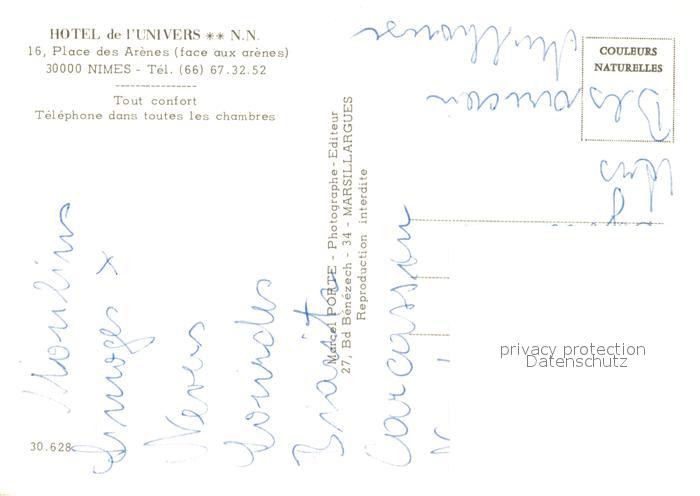 HOTEL de l'UNIVERS ** N.N.
16, Place des Arènes (face aux arènes)
30000 NIMES - Tél. (66) 67.32.52
Tout confort
Téléphone dans toutes les chambres
COULEURS
NATURELLES
Marcel PORTE - Photographe - Editeur
27, Bd Bénézech - 34 - MARSILLARGUES
Reproduction interdite
Moulins
Limoges x
Nevers
Carcasson
Besancon
Mulhouse
30.628
privacy protection
Datenschutz